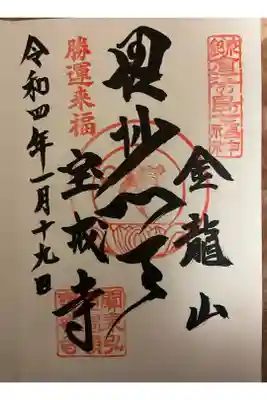 金龍山
毘沙門天
宝戒寺
勝運来福
令和四年一月十九日